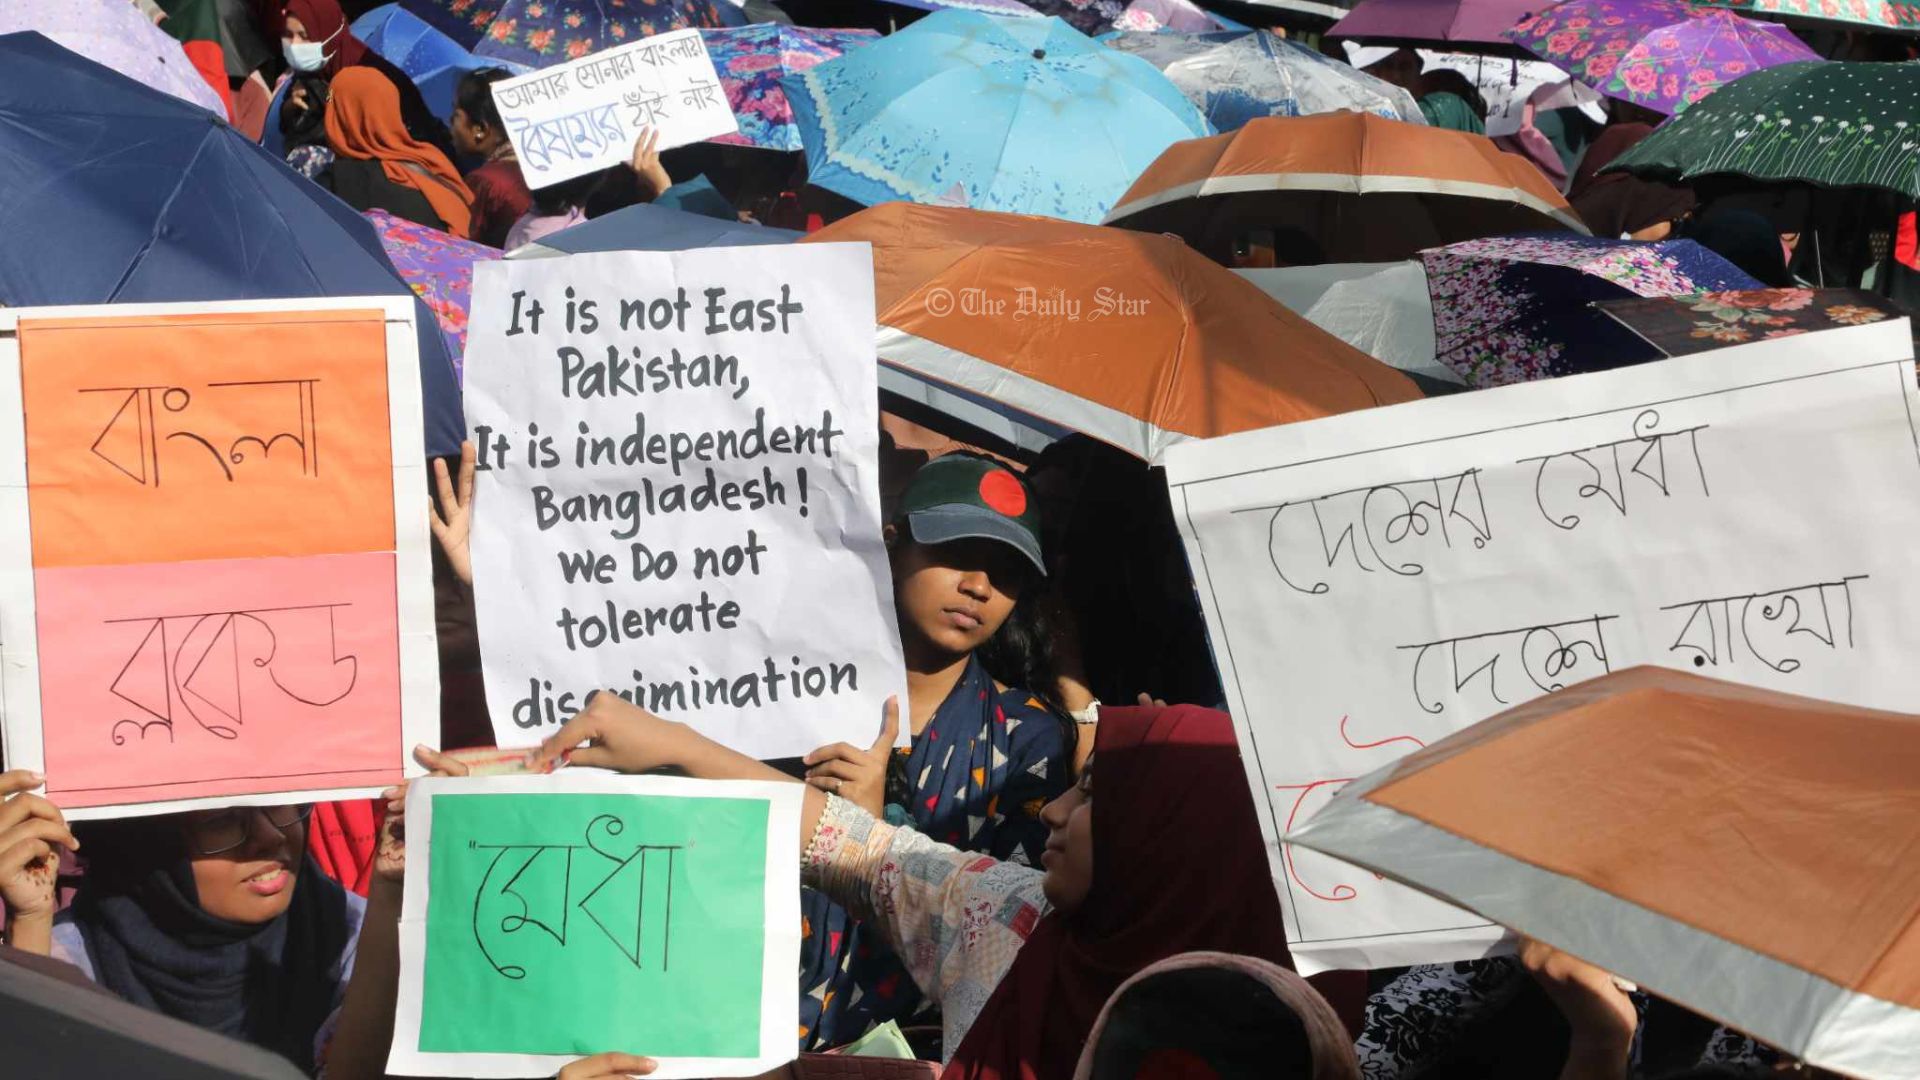 আমার সোনার বাংলায়
বৈষম্যের ঠাঁই নাই
© The Daily Star
It is not East
Pakistan,
It is independent
Bangladesh!
We Do not
tolerate
discrimination
বাংলা
ব্লকেড
দেশের মেধা
দেশে রাখো
"মেধা"